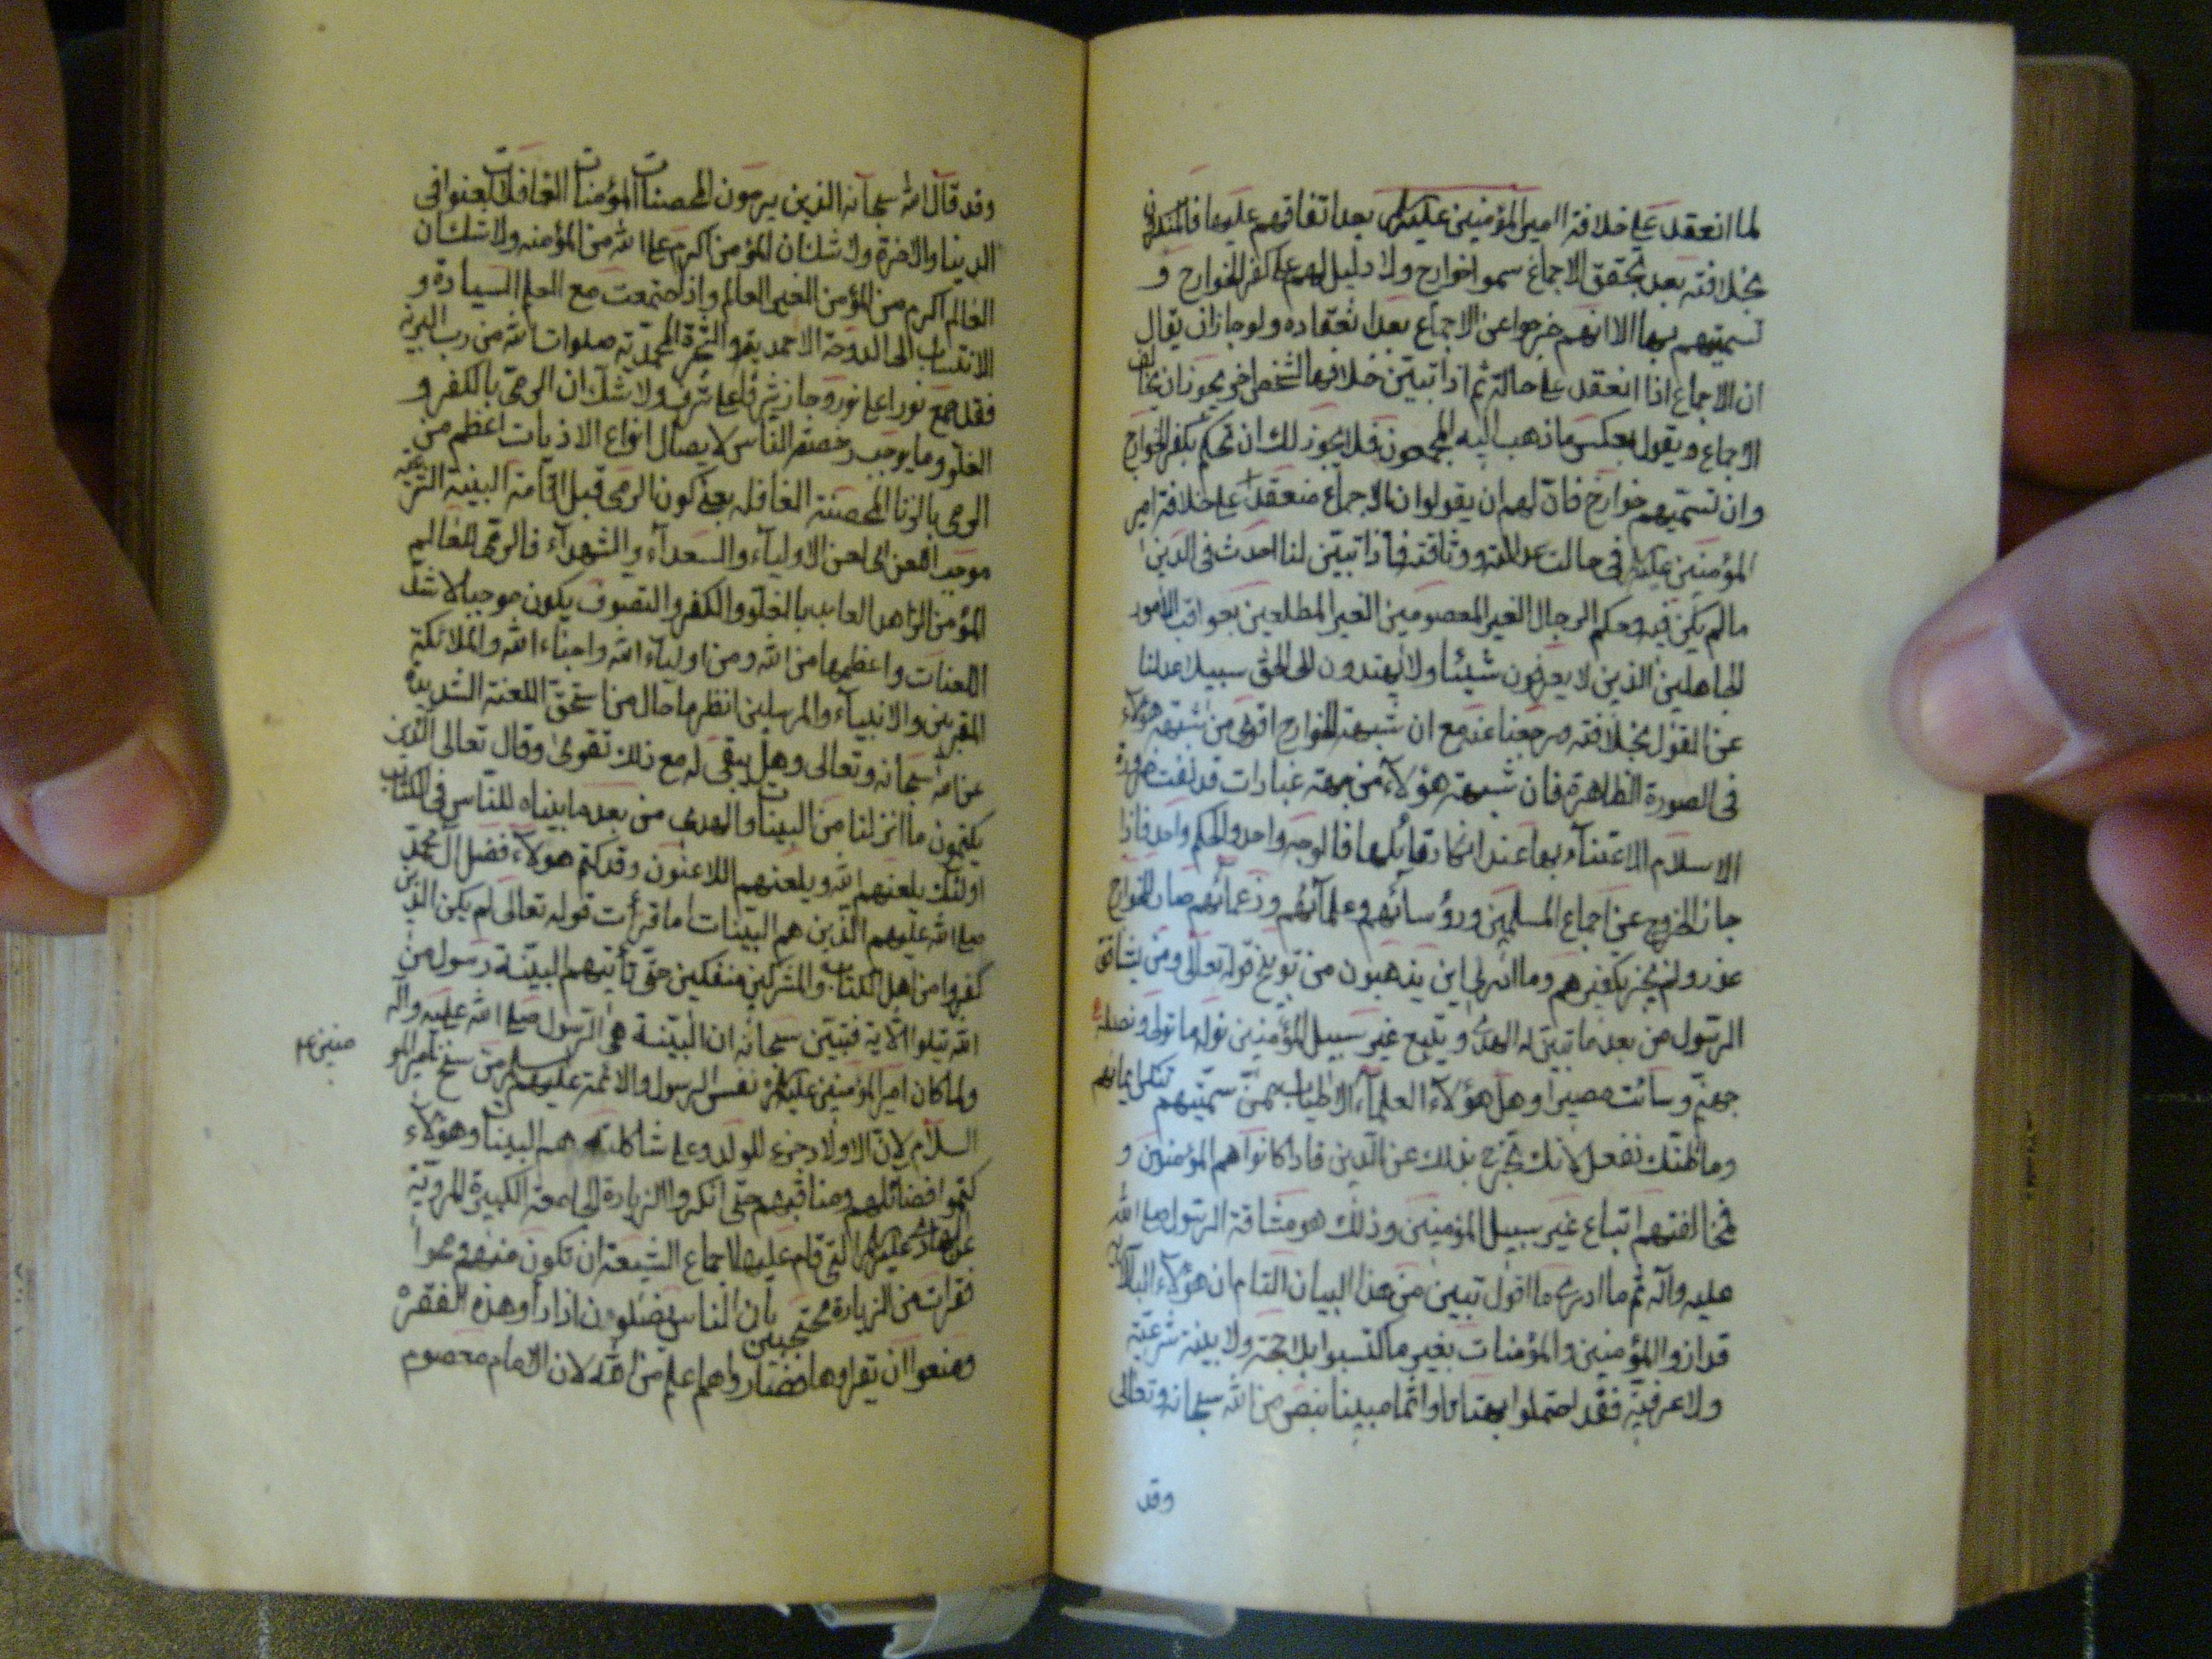 لما انعقد على خلافة امير المؤمنين عليه السلام بعد اتفاقهم عليها فالمنكر
بخلافته بعد تحقق الاجماع سموا خوارج ولا دليل لهم على كفر الخوارج و
تسميتهم بها الا انهم خرجوا عن الاجماع بعد انعقاده ولو جاز ان يقال
ان الاجماع اذا انعقد على حالة ثم اذا تبين خلافها لشخص اخر يجوز ان يخالف
الاجماع ويقول بعكس ما ذهب اليه المجمعون فلا يجوز لك ان تحكم بكفر الخوارج
وان تسميهم خوارج فان لهم ان يقولوا ان الاجماع منعقد على خلافة امير
المؤمنين عليه السلام في حالت عدالته ووثاقته فاذا تبين لنا احدث في الدين
ما لم يكن فيه وحكم الرجال الغير المعصومين الغير المطلعين بعواقب الامور
الجاهلين الذين لا يعرفون شيئا ولا يهتدون الى الحق سبيلا عدلنا
عن القول بخلافته ورجعنا عنه مع ان شبهة الخوارج اقوى من شبهة هؤلاء
في الصورة الظاهرة فان شبهة هؤلاء من جهة عبارات قد نفت ضرورة
الاسلام الاعتناء بها عند انكار قايلها فالوجه واحد والحكم واحد فاذا
جاز الخروج عن اجماع المسلمين ورؤسائهم وعلمائهم وزعمائهم صار للخوارج
عذر ولم يجز تكفيرهم وما ادري اين يذهبون من توبيخ قوله تعالى ومن يشاقق
الرسول من بعد ما تبين له الهدى ويتبع غير سبيل المؤمنين نوله ما تولى ونصله
جهنم وسائت مصيرا وهل هؤلاء العلماء الاطياب ممن سميتهم تنكر ايمانهم
وما اظنك تفعل لانك تخرج بذلك عن الدين فاذا كانوا هم المؤمنون و
مخالفتهم اتباع غير سبيل المؤمنين وذلك هو مشاقة الرسول صلى الله
عليه وآله ثم ما ادري ما اقول تبين من هذا البيان التام ان هؤلاء
قد اذوا المؤمنين والمؤمنات بغير ما اكتسبوا بلا حجة ولا بينة شرعية
ولا عرفية فقد احتملوا بهتانا واثما مبينا بنص من الله سبحانه وتعالى
وقد
وقد قال الله سبحانه الذين يرمون المحصنات المؤمنات الغافلات لعنوا في
الدنيا والاخرة ولا شك ان المؤمن اكرم على الله من المؤمنه ولا شك ان
العالم اكرم من المؤمن الغير العالم واذا اجتمعت مع العلم السيادة و
الانتساب الى الدوحة الاحمدية والشجرة المحمدية صلوات الله من رب البرية
فقد جمع نورا على نور وحاز شرفا على شرف ولا شك ان الرمي بالكفر و
الغلو وما يوجب رخصة الناس لايصال انواع الاذيات اعظم من
الرمي بالزنا المحصنة الغافله بعد كون الرمي قبل اقامة البينة الشرعية
موجب اللعن الى لعن الاولياء والسعدآء والشهدآء فالرمي للعالم
المؤمن الزاهد العابد بالغلو والكفر والتصوف يكون موجبا لاشد
اللعنات واعظمها من الله ومن اولياء الله واحباء الله والملائكة
المقربين والانبياء والمرسلين انظر ما حال من استحق اللعنة الشديدة
عن الله سبحانه وتعالى وهل يبقى له مع ذلك تقوى وقال تعالى الذين
يكتمون ما انزلنا من البينات والهدى من بعد ما بيناه للناس في الكتاب
اولئك يلعنهم الله ويلعنهم اللاعنون وقد كتم هؤلآء فضل آل محمد
صلى الله عليهم الذين هم البينات اما قرأت قوله تعالى لم يكن الذين
كفروا من اهل الكتاب والمشركين منفكين حتى تأتيهم البينة رسول من
الله يتلو الآية فتبين سبحانه ان البينة هي الرسول صلى الله عليه وآله
ولما كان امير المؤمنين عليه السلام نفس الرسول والائمة عليهم السلام من سنخ امير المؤ
منين عم
السلام لان الاولاد جزء للولد وعلى شاكلته هم البينات وهؤلاء
كتموا فضائلهم ومناقبهم حتى انكروا الزيارة الجامعة الكبيرة المروية
عن الهادي عليه السلام التي قام عليها اجماع الشيعة ان تكون منهم ومحوا
فقرات من الزيارة محتجين بان الناس يضلون اذا رأوا هذه الفقرة
ومنعوا ان تقراوها فصاروا هم اعلم من الله لان الامام معصوم